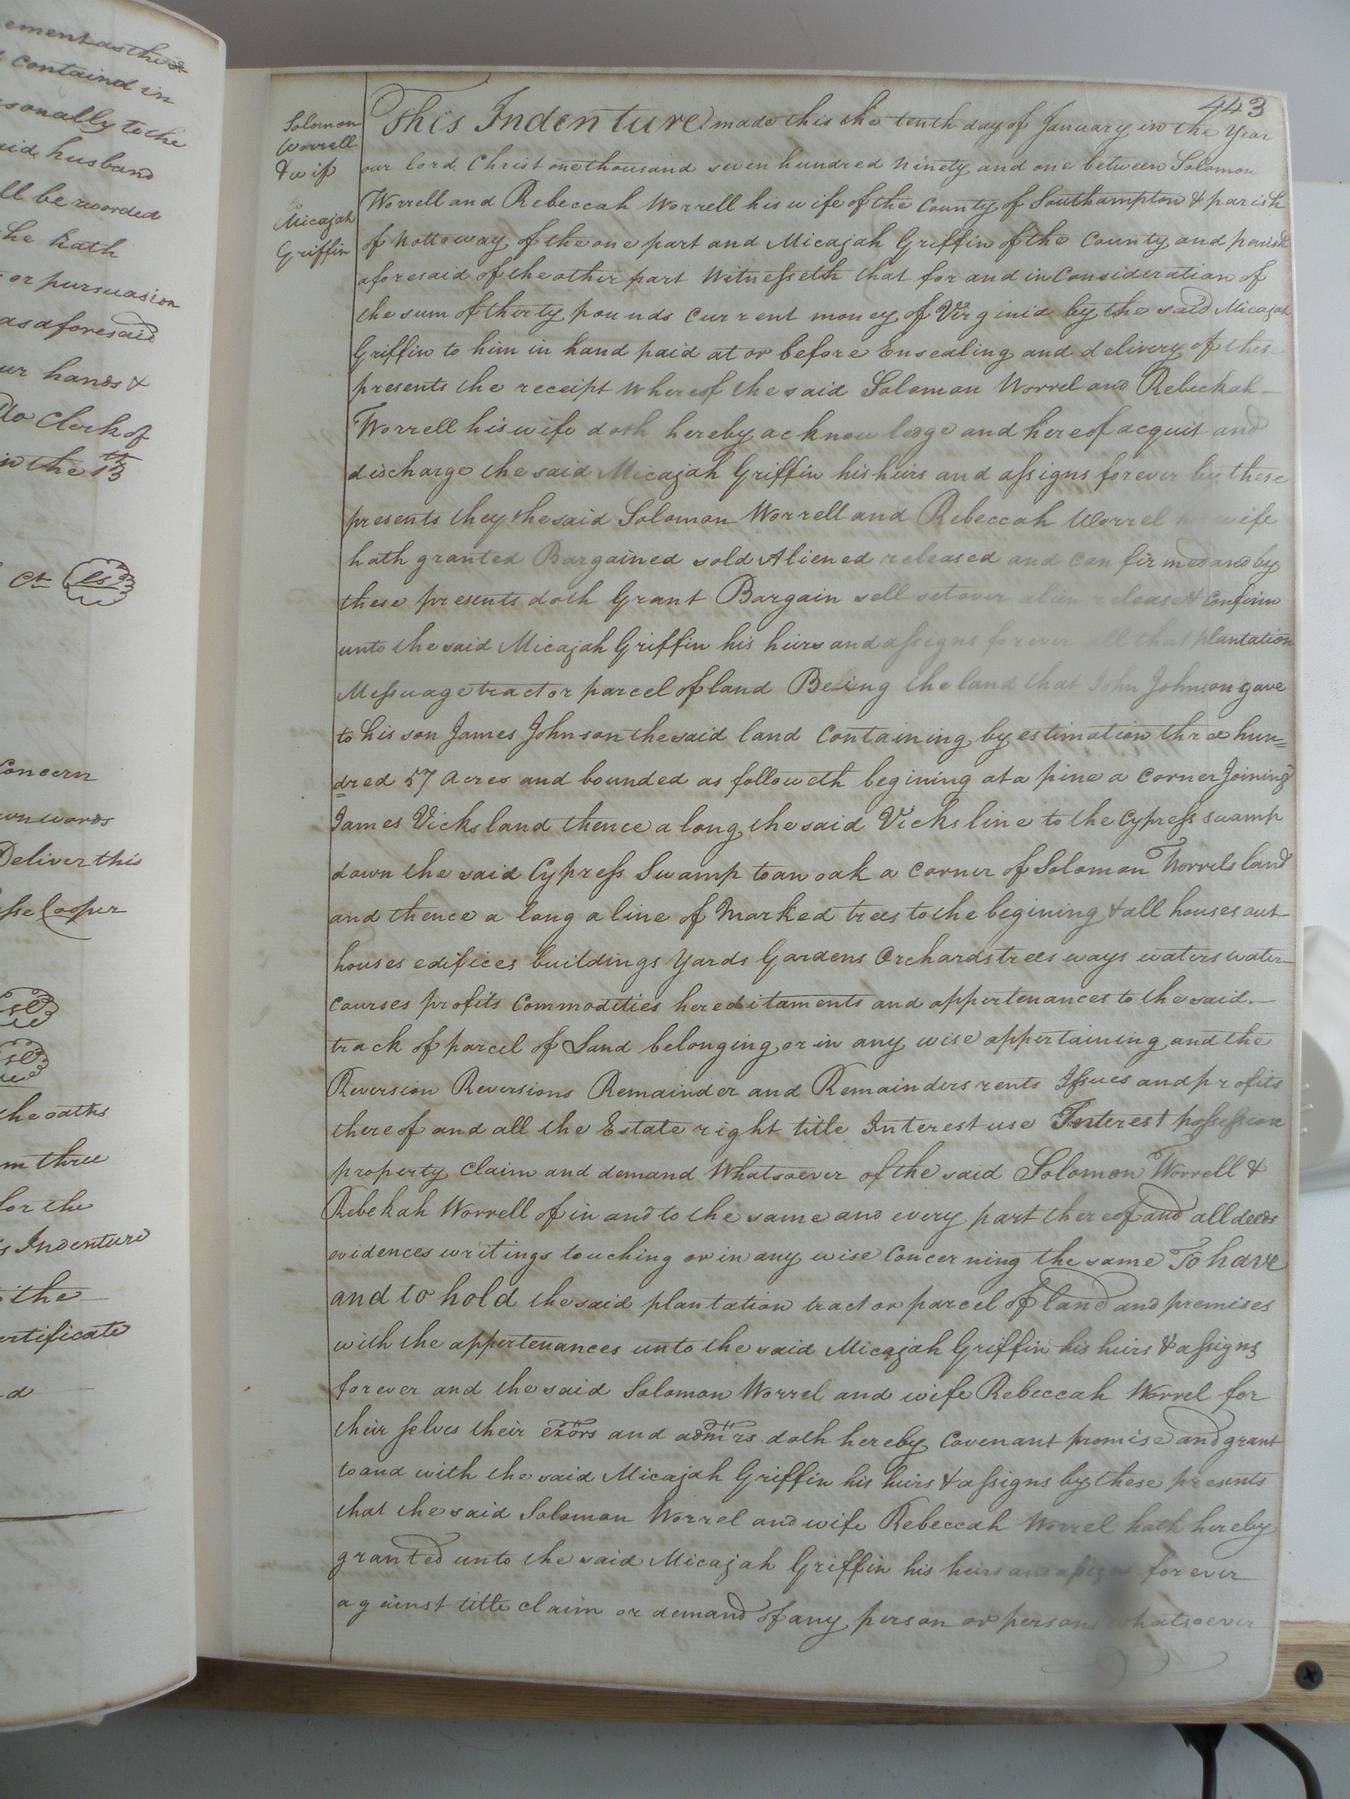 ement as the
containd in
sonally to the
aid husband
ll be recorded
he hath
or pursuasion
as aforesaid
ur hands &
Clerk of
in the 13th
Ct ls
Concern
own words
Deliver this
Cooper
sl
sl
the oaths
m three
for the
s Indenture
the
ertificate
d
443
Solomon
Worrell
& wife
to
Micajah
Griffin
This Indenture made this the tenth day of January in the Year
our lord Christ one thousand seven hundred ninety and one between Solomon
Worrell and Rebeccah Worrell his wife of the County of Southampton & parish
of nottoway of the one part and Micajah Griffin of the County and parish
aforesaid of the other part Witnesseth that for and in Consideration of
the sum of thirty pounds Current money of Virginia by the said Micajah
Griffin to him in hand paid at or before Ensealing and delivery of these
presents the receipt whereof the said Solomon Worrel and Rebeckah
Worrell his wife doth hereby acknowledge and hereof acquit and
discharge the said Micajah Griffin his heirs and assigns forever by these
presents they the said Solomon Worrell and Rebeccah Worrel his wife
hath granted Bargained sold Aliened released and confirmed and by
these presents doth Grant Bargain sell set over alien release & Confirm
unto the said Micajah Griffin his heirs and assigns forever all that plantation
Messuage tract or parcel of land Being the land that John Johnson gave
to his son James Johnson the said land Containing by estimation three hun=
dred 57 Acres and bounded as followeth begining at a pine a Corner Joining
James Vicks land thence a long the said Vicks line to the Cypress swamp
down the said Cypress Swamp to an oak a Corner of Solomon Worrels land
and thence a long a line of Marked trees to the begining & all houses out
houses edifices buildings Yards Gardens Orchards trees ways waters water
courses profits Commodities hereditaments and appertenances to the said
track of parcel of Land belonging or in any wise appertaining and the
Reversion Reversions Remainder and Remainders rents Issues and profits
thereof and all the Estate right title Interest use Interest possession
property Claim and demand Whatsoever of the said Solomon Worrell &
Rebekah Worrell of in and to the same and every part thereof and all deeds
evidences writings touching or in any wise Concerning the same To have
and to hold the said plantation tract or parcel of land and premises
with the appertenances unto the said Micajah Griffin his heirs & assigns
forever and the said Solomon Worrel and wife Rebeccah Worrel for
their selves their exors and admrs doth hereby Covenant promise and grant
to and with the said Micajah Griffin his heirs & assigns by these presents
that the said Solomon Worrel and wife Rebeccah Worrel hath hereby
granted unto the said Micajah Griffin his heirs and assigns forever
against title claim or demand of any person or persons whatsoever